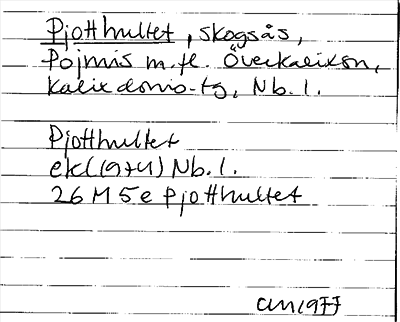 Pjotthultet, skogsås,
Pojmis m.fl. Överkalix sn,
Kalix doms-tg, Nb. l.
Pjotthultet
ekl (9+4) Nb. l.
26 M 5 e Pjotthultet
CM 1977